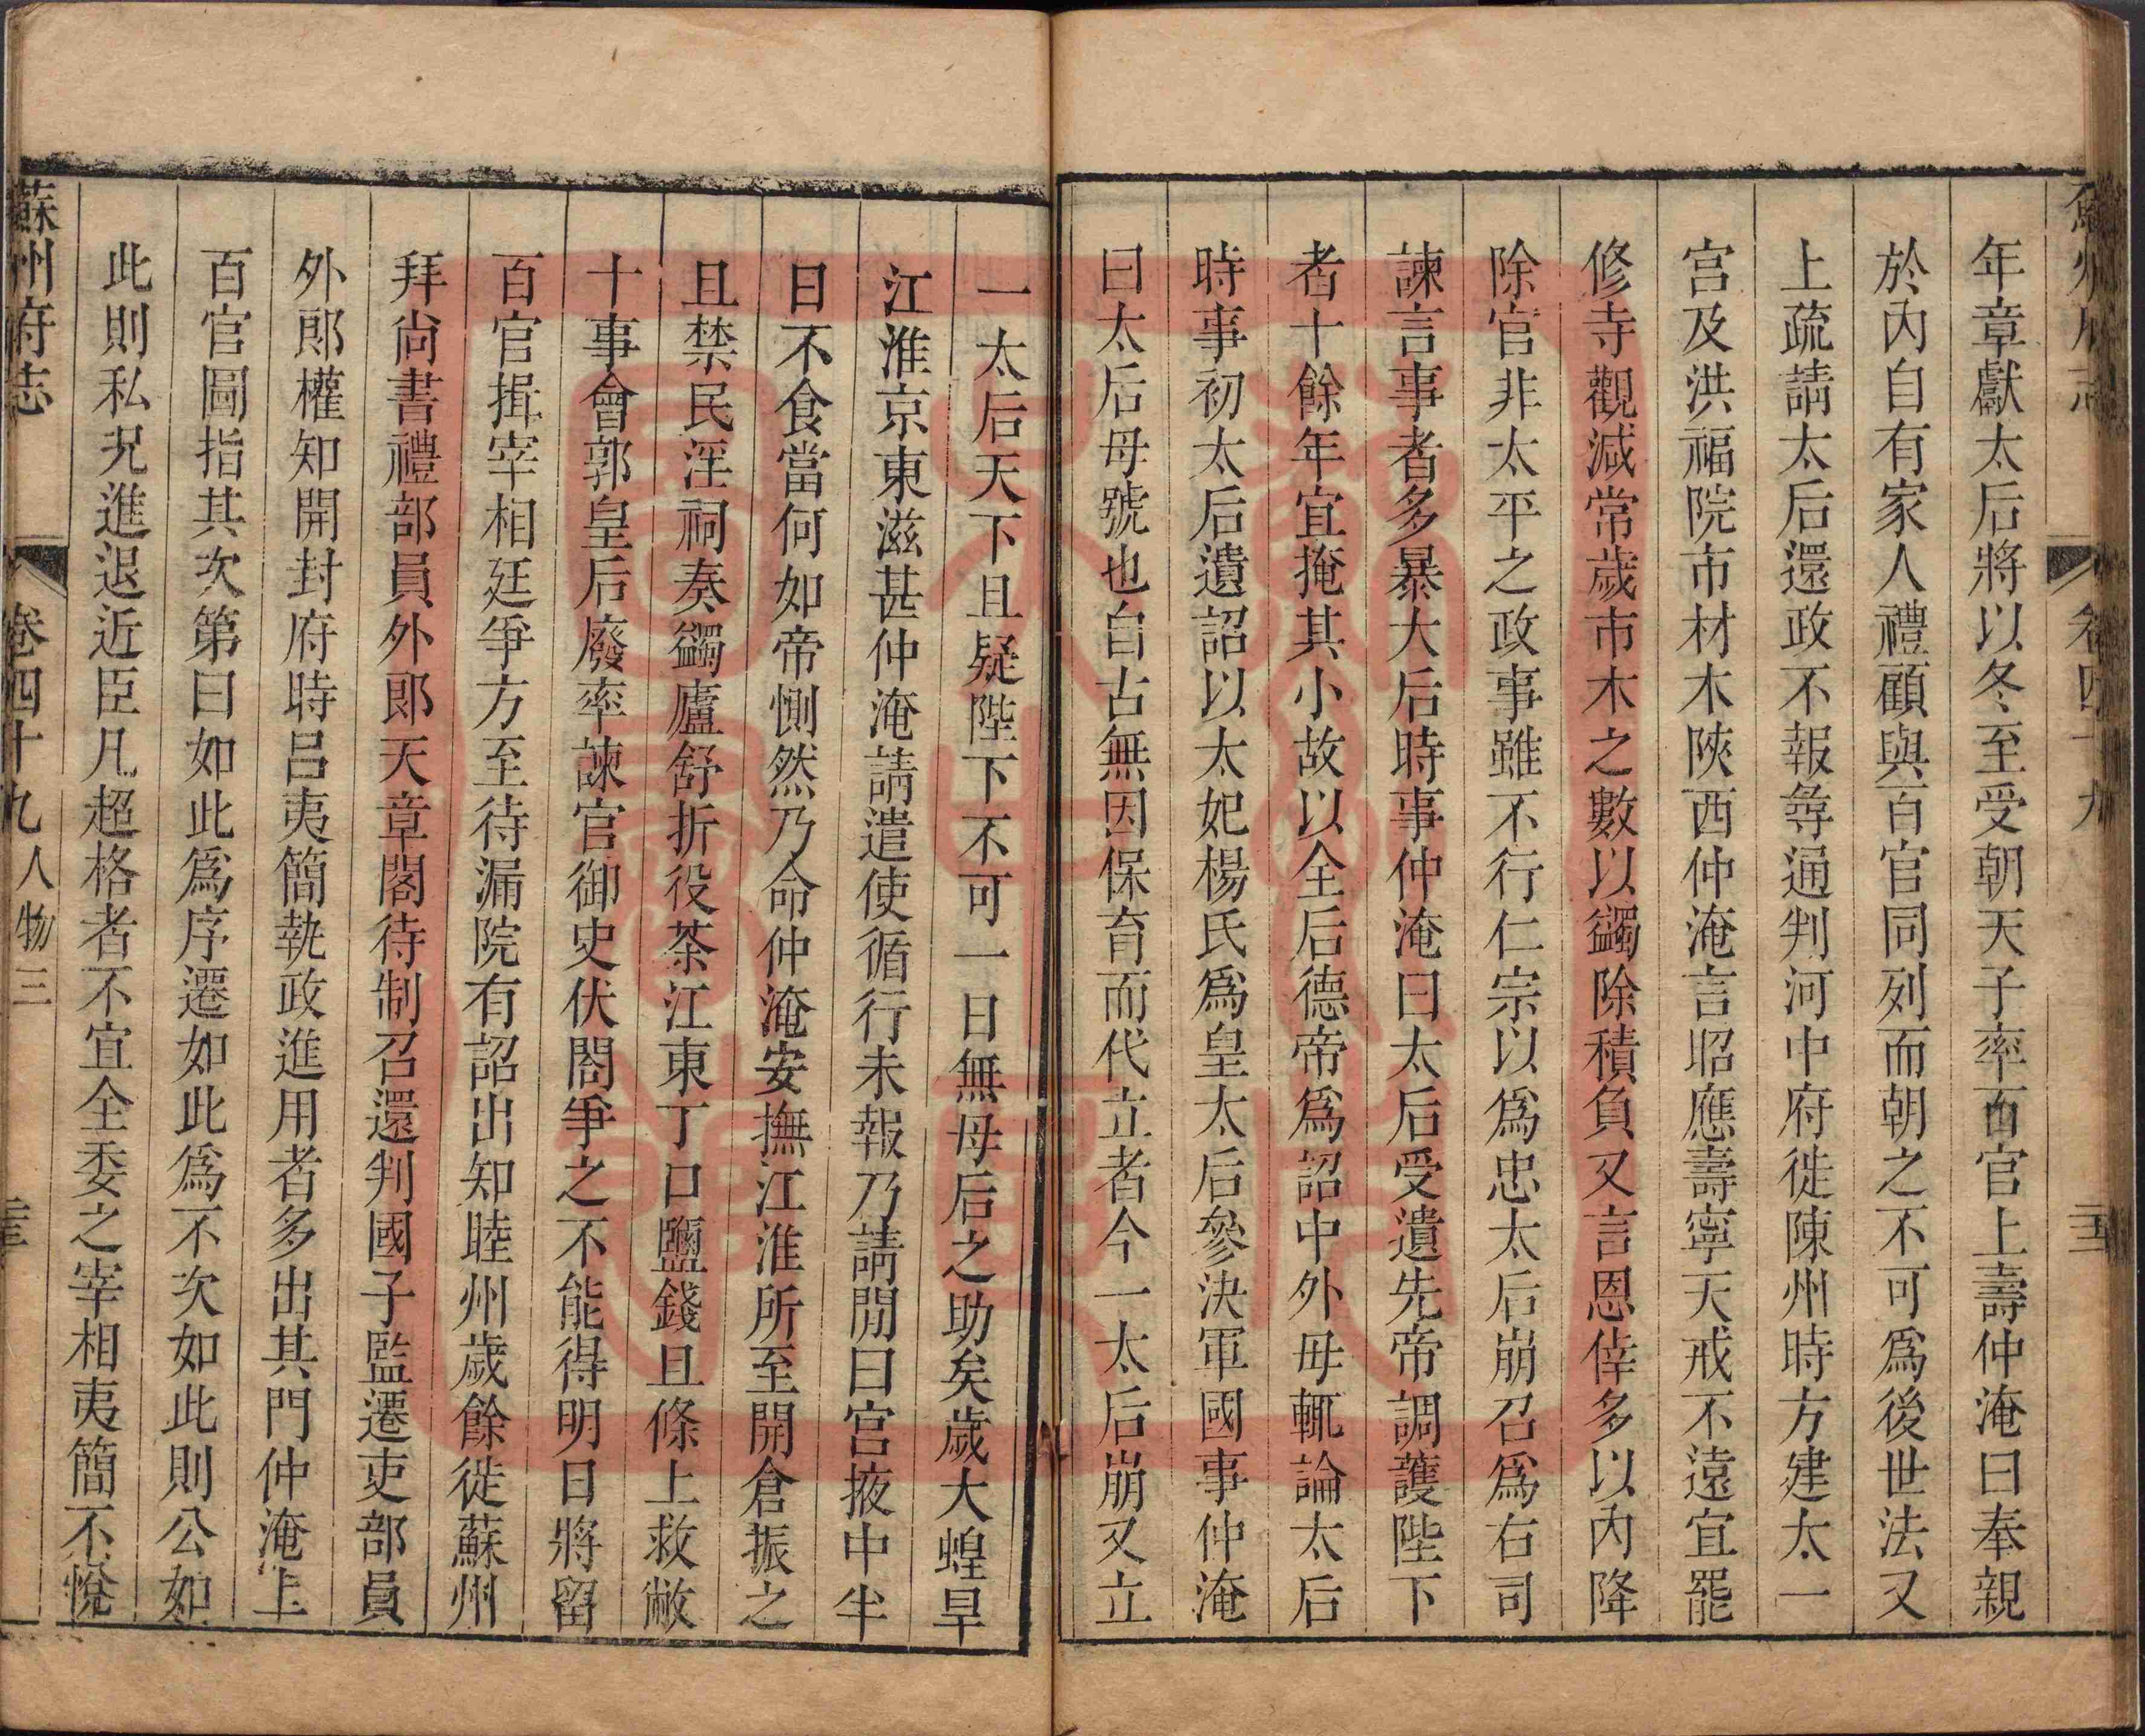 年章獻太后將以冬至受朝天子率百官上壽仲淹曰奉親
於內自有家人禮顧與百官同列而朝之不可爲後世法又
上疏請太后還政不報尋通判河中府徙陳州時方建太一
宮及洪福院市材木陝西仲淹言昭應壽寧天戒不遠宜罷
修寺觀減常歲市木之數以蠲除積負又言恩倖多以內降
除官非太平之政事雖不行仁宗以爲忠太后崩召爲右司
諫言事者多暴大后時事仲淹曰太后受遺先帝調護陛下
者十餘年宜掩其小故以全后德帝爲詔中外毋輒論太后
時事初太后遺詔以太妃楊氏爲皇太后參決軍國事仲淹
曰太后母號也自古無因保育而代立者今一太后崩又立
一太后天下且疑陛下不可一日無母后之助矣歲大蝗旱
江淮京東滋甚仲淹請遣使循行未報乃請閒曰宮掖中半
日不食當何如帝惻然乃命仲淹安撫江淮所至開倉振之
且禁民淫祠奏蠲廬舒折役茶江東丁口鹽錢且條上救敝
十事會郭皇后廢率諫官御史伏閤爭之不能得明日將留
百官揖宰相廷爭方至待漏院有詔出知睦州歲餘徙蘇州
拜尚書禮部員外郎天章閣待制召還判國子監遷吏部員
外郎權知開封府時呂夷簡執政進用者多出其門仲淹上
百官圖指其次第曰如此爲序遷如此爲不次如此則公如
此則私況進退近臣凡超格者不宜全委之宰相夷簡不悅
蘇州府志
卷四十九
人物三